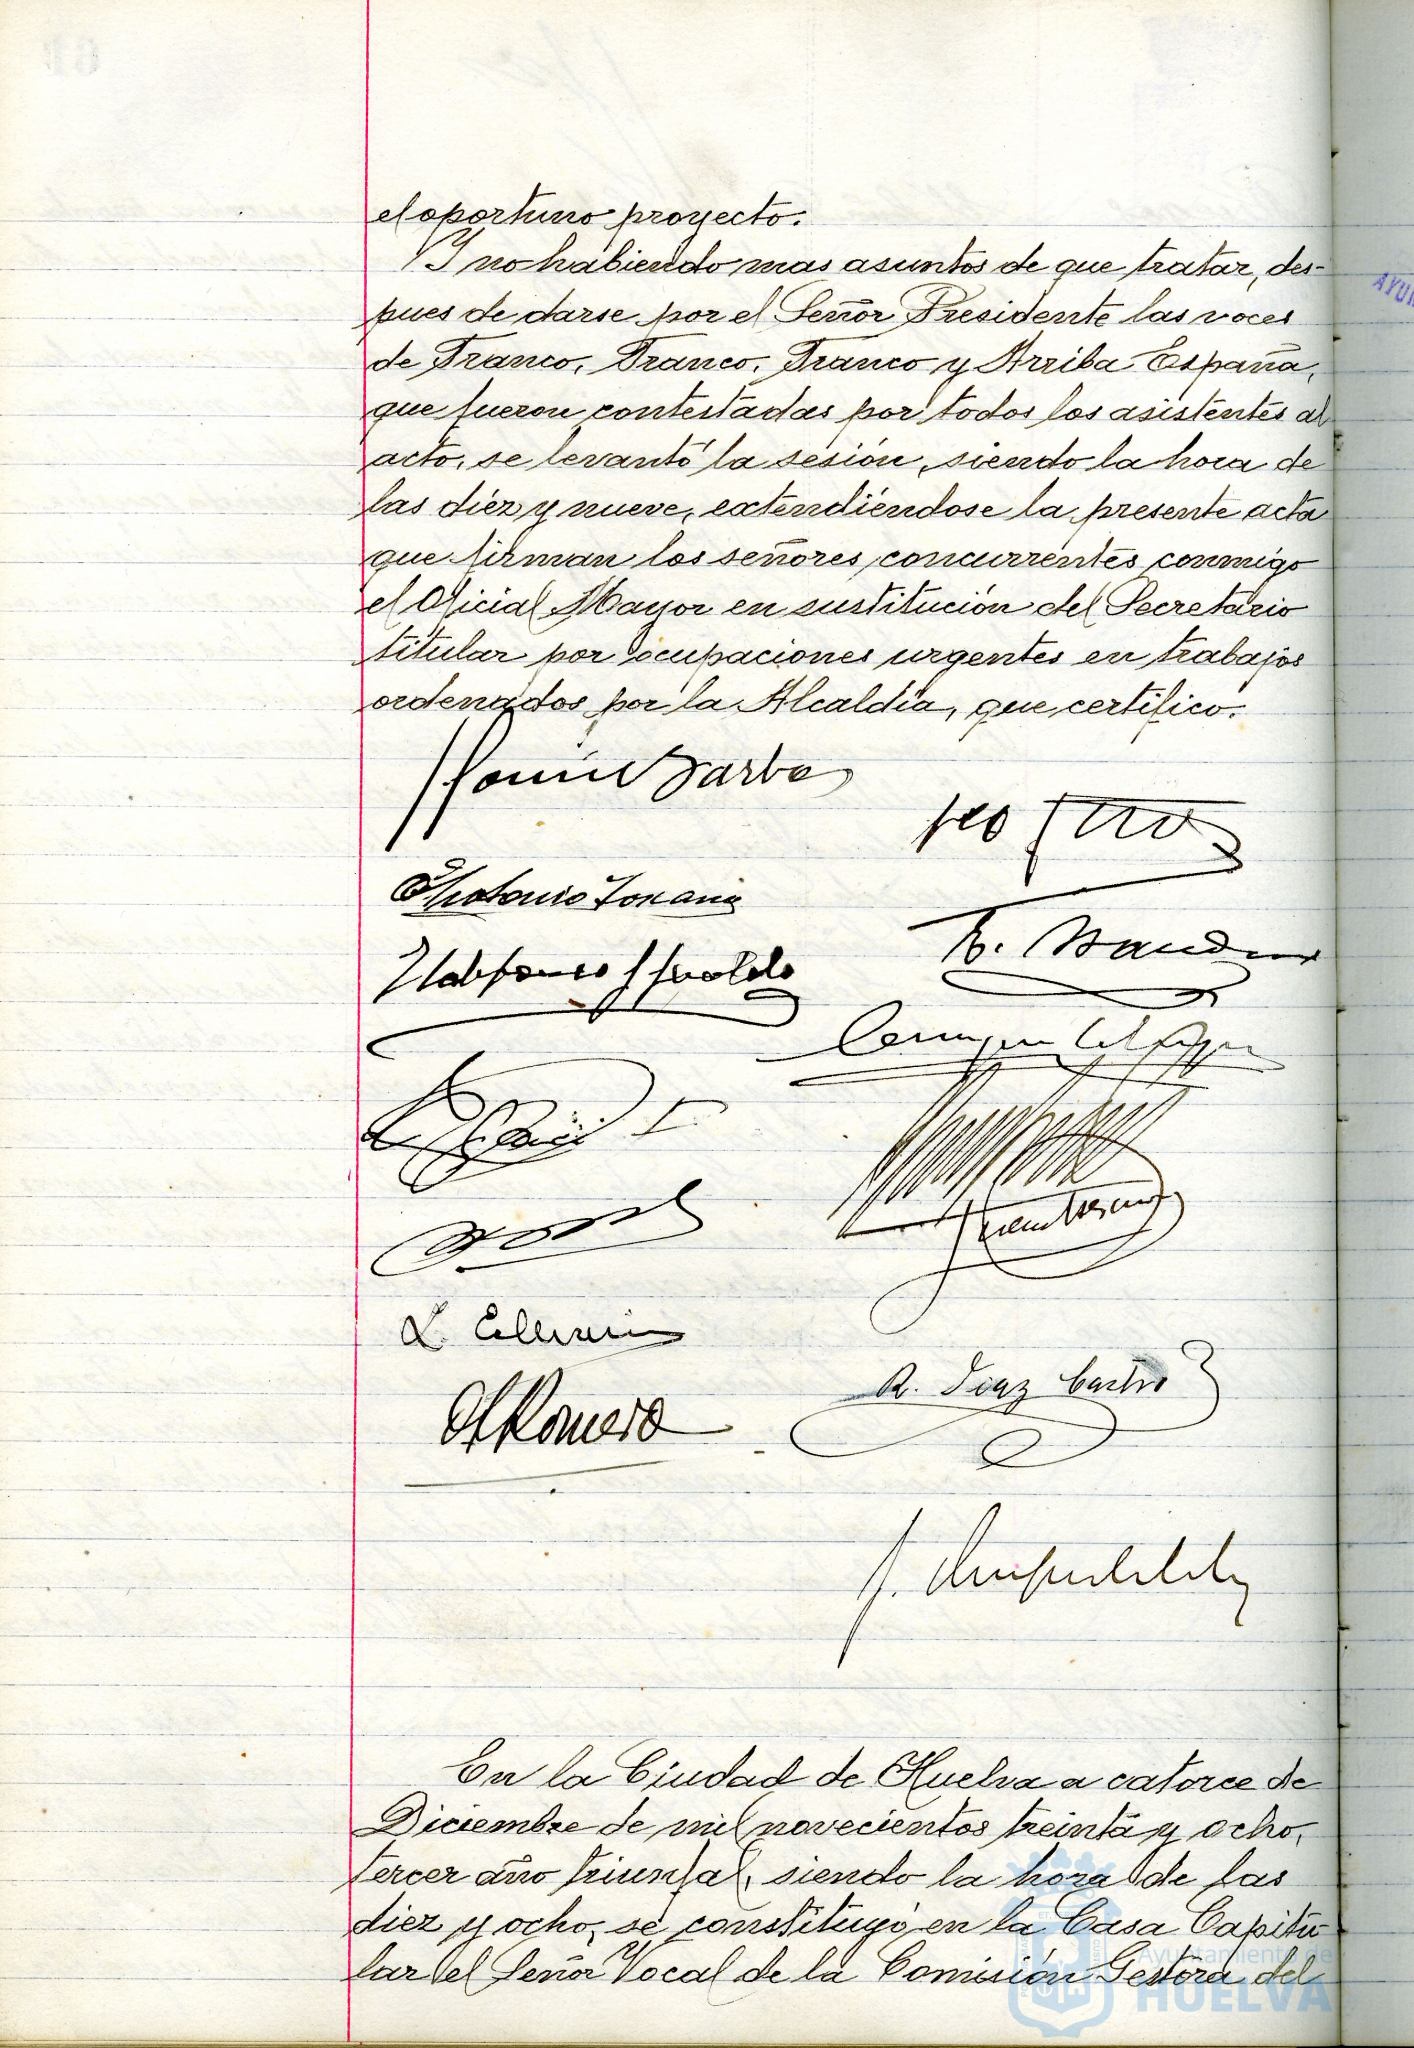 el oportuno proyecto.
Y no habiendo mas asuntos de que tratar, des-
pues de darse por el Señor Presidente las voces
de Franco, Franco, Franco y Arriba España,
que fueron contestadas por todos los asistentes al
acto, se levantó la sesión, siendo la hora de
las diez y nueve, extendiéndose la presente acta
que firman los señores concurrentes conmigo
el Oficial Mayor en sustitución del Secretario
titular por ocupaciones urgentes en trabajos
ordenados por la Alcaldía, que certifico.
Barba
Ildefonso
R. Diaz Castro
Romero
En la Ciudad de Huelva a catorce de
Diciembre de mil novecientos treinta y ocho,
tercer año triunfal, siendo la hora de las
diez y ocho, se constituyó en la Casa Capitu
lar el Señor Vocal de la Comisión Gestora del
Ayuntamiento de
HUELVA